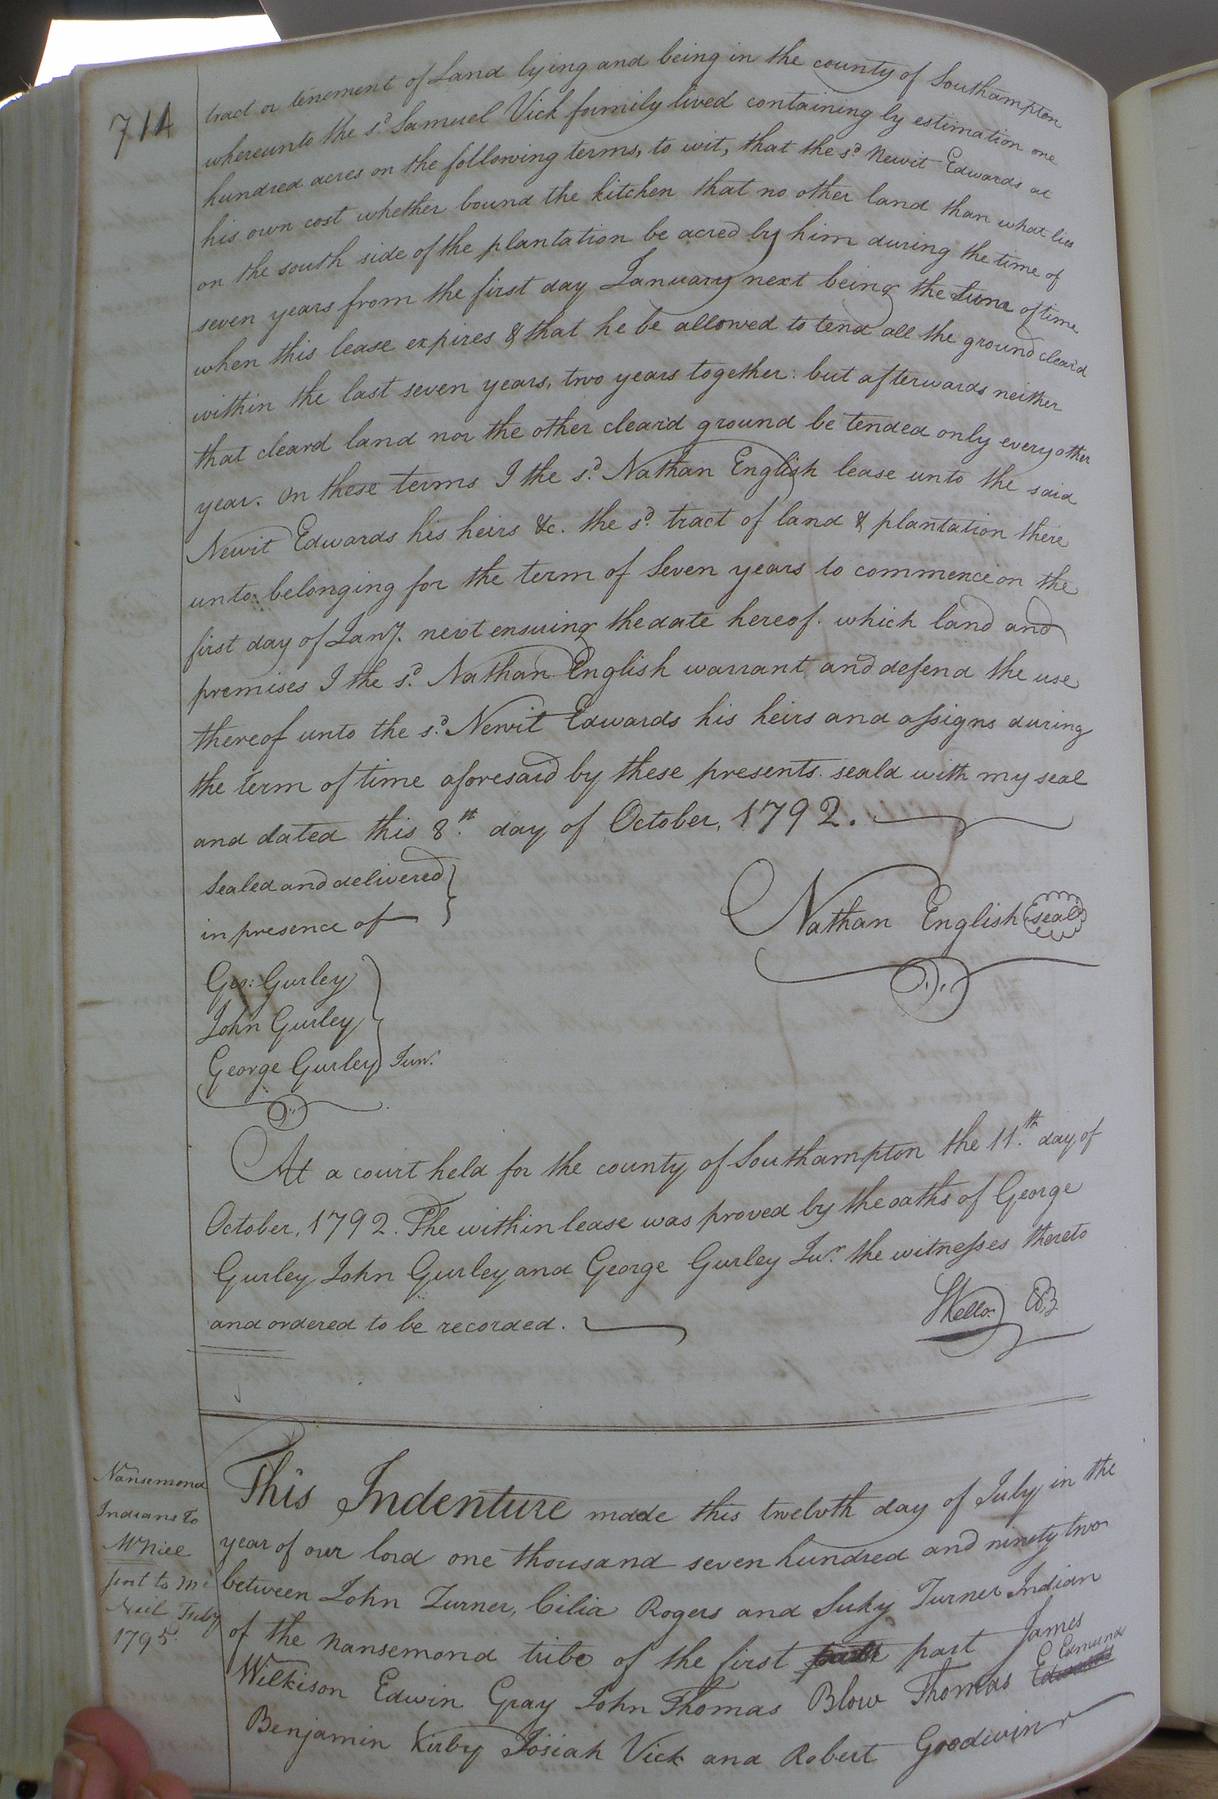 714
tract or tenement of Land lying and being in the county of Southampton
whereunto the sd. Samuel Vick formily lived containing by estimation one
hundred acres on the following terms, to wit, that the sd. Newit Edwards at
his own cost whether bound the kitchen that no other land than what lies
on the south side of the plantation be acred by him during the time of
seven years from the first day January next being the of time
when this lease expires & that he be allowed to tend all the ground cleard
within the last seven years, two years together: but afterwards neither
that cleard land nor the other cleard ground be tended only every other
year. on these terms I the sd. Nathan English lease unto the said
Newit Edwards his heirs &c. the sd. tract of land & plantation there
unto belonging for the term of Seven years to commence on the
first day of Jany. next ensuing the date hereof. which land and
premises I the sd. Nathan English warrant and defend the use
thereof unto the sd. Newit Edwards his heirs and assigns during
the term of time aforesaid by these presents. seald with my seal
and dated this 8th. day of October, 1792.
Sealed and delivered
in presence of
Nathan English seal
Geo: Gurley
John Gurley
George Gurley Junr.
At a court held for the county of Southampton the 11th. day of
October, 1792. The within lease was proved by the oaths of George
Gurley John Gurley and George Gurley Junr. the witnesses thereto
and ordered to be recorded.
Nansemond
Indians to
McNiel
Sent to Mc
Neil July
1795.
This Indenture made this twelvth day of July in the
year of our lord one thousand seven hundred and ninety two
between John Turner, Cilia Rogers and Suky Turner Indian
of the nansemond tribe of the first part James
Wilkison Edwin Gray John Thomas Blow Thomas Edwards Edmund
Benjamin Kirby Josiah Vick and Robert Goodwin